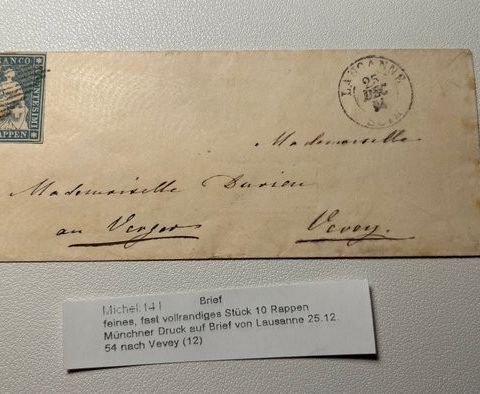 FRANCO
CENTESIMI
RAPPEN
LAUSANNE
25
DEC
54
SOIR
Mademoiselle
Mademoiselle Durieu
au Verger
Vevey.
Michel:14 I Brief
feines, fast vollrandiges Stück 10 Rappen
Münchner Druck auf Brief von Lausanne 25.12.
54 nach Vevey (12)